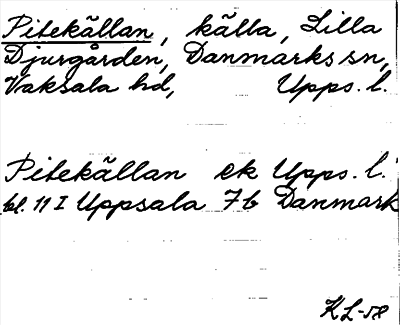 Pitekällan, källa, Lilla
Djurgården, Danmarks sn,
Vaksala hd, Upps. l.
Pitekällan ek Upps. l.
bl. 11 I Uppsala 7b Danmark
KL-58